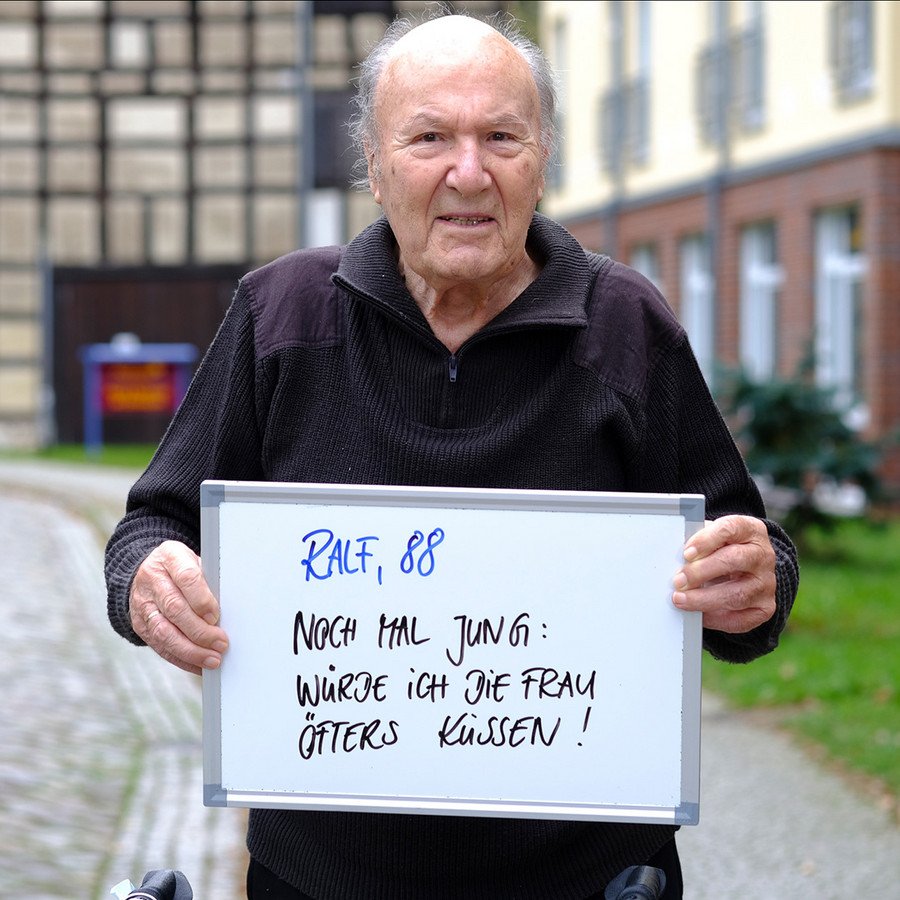 RALF, 88
NOCH MAL JUNG:
WÜRDE ICH DIE FRAU
ÖFTERS KÜSSEN!